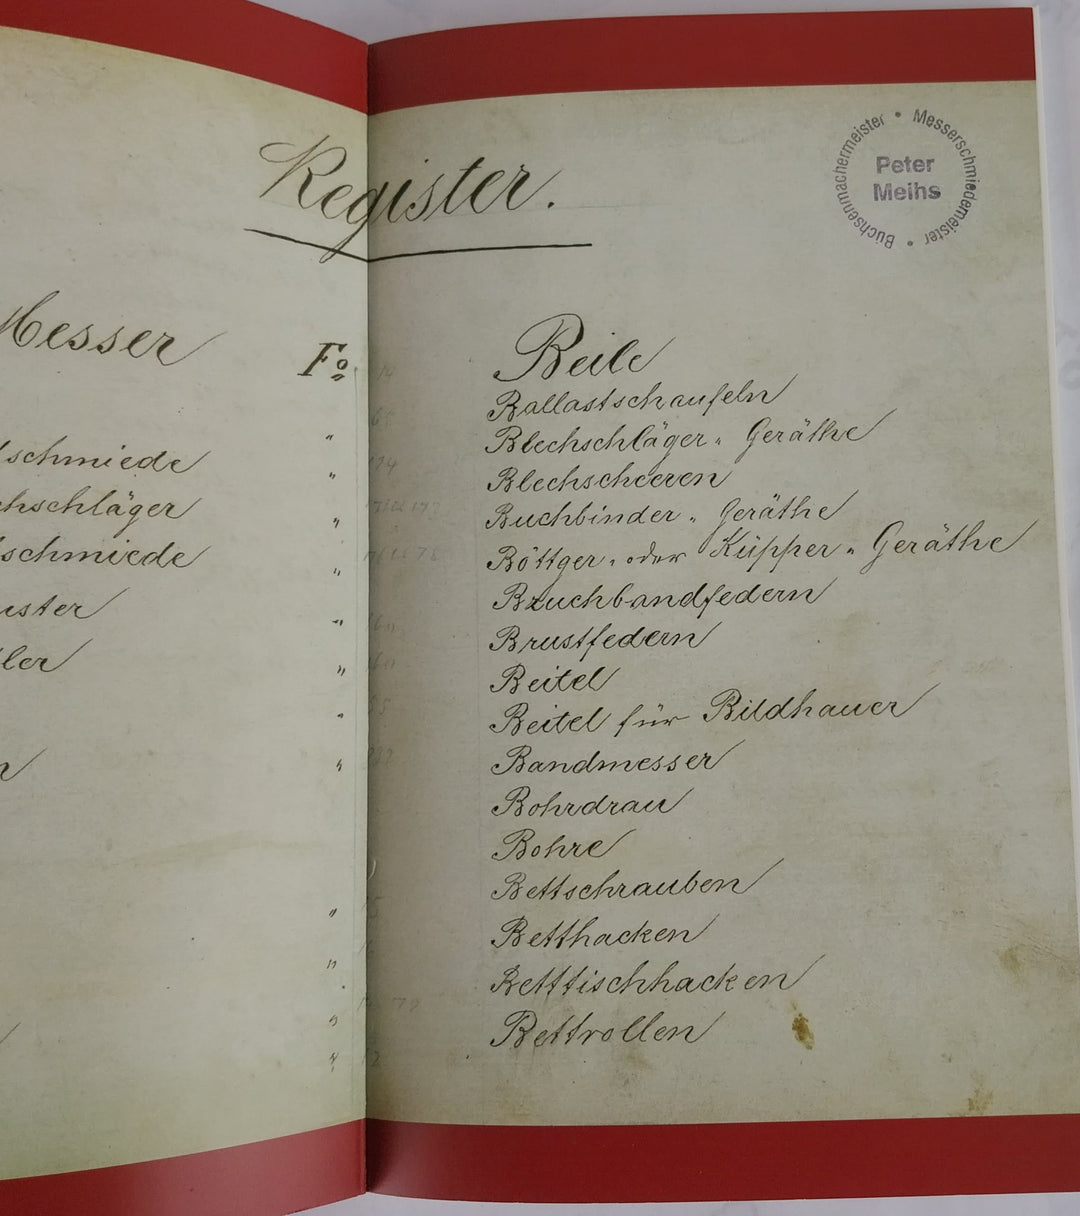 Register.
Messer
Fo
schmiede
chschläger
schmiede
Beile
Ballastschaufeln
Blechschläger„ Geräthe
Blechscheeren
Buchbinder„ Geräthe
Böttger„ oder Küpper„ Geräthe
Bruchbandfedern
Brustfedern
Beitel
Beitel für Bildhauer
Bandmesser
Bohrdrau
Bohre
Bettschrauben
Betthacken
Betttischhacken
Bettrollen
Büchsenmachermeister • Messerschmiedemeister •
Peter
Meihs